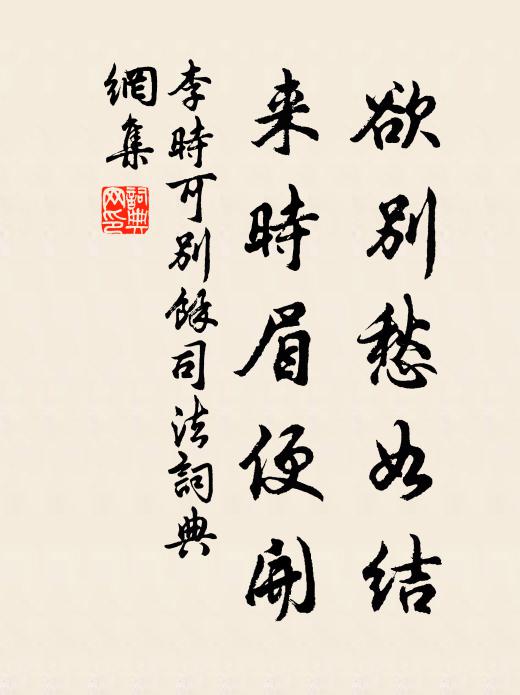 欲別愁如結
来時眉便開
李時可別餘司法詞典
網集
詞典
网印